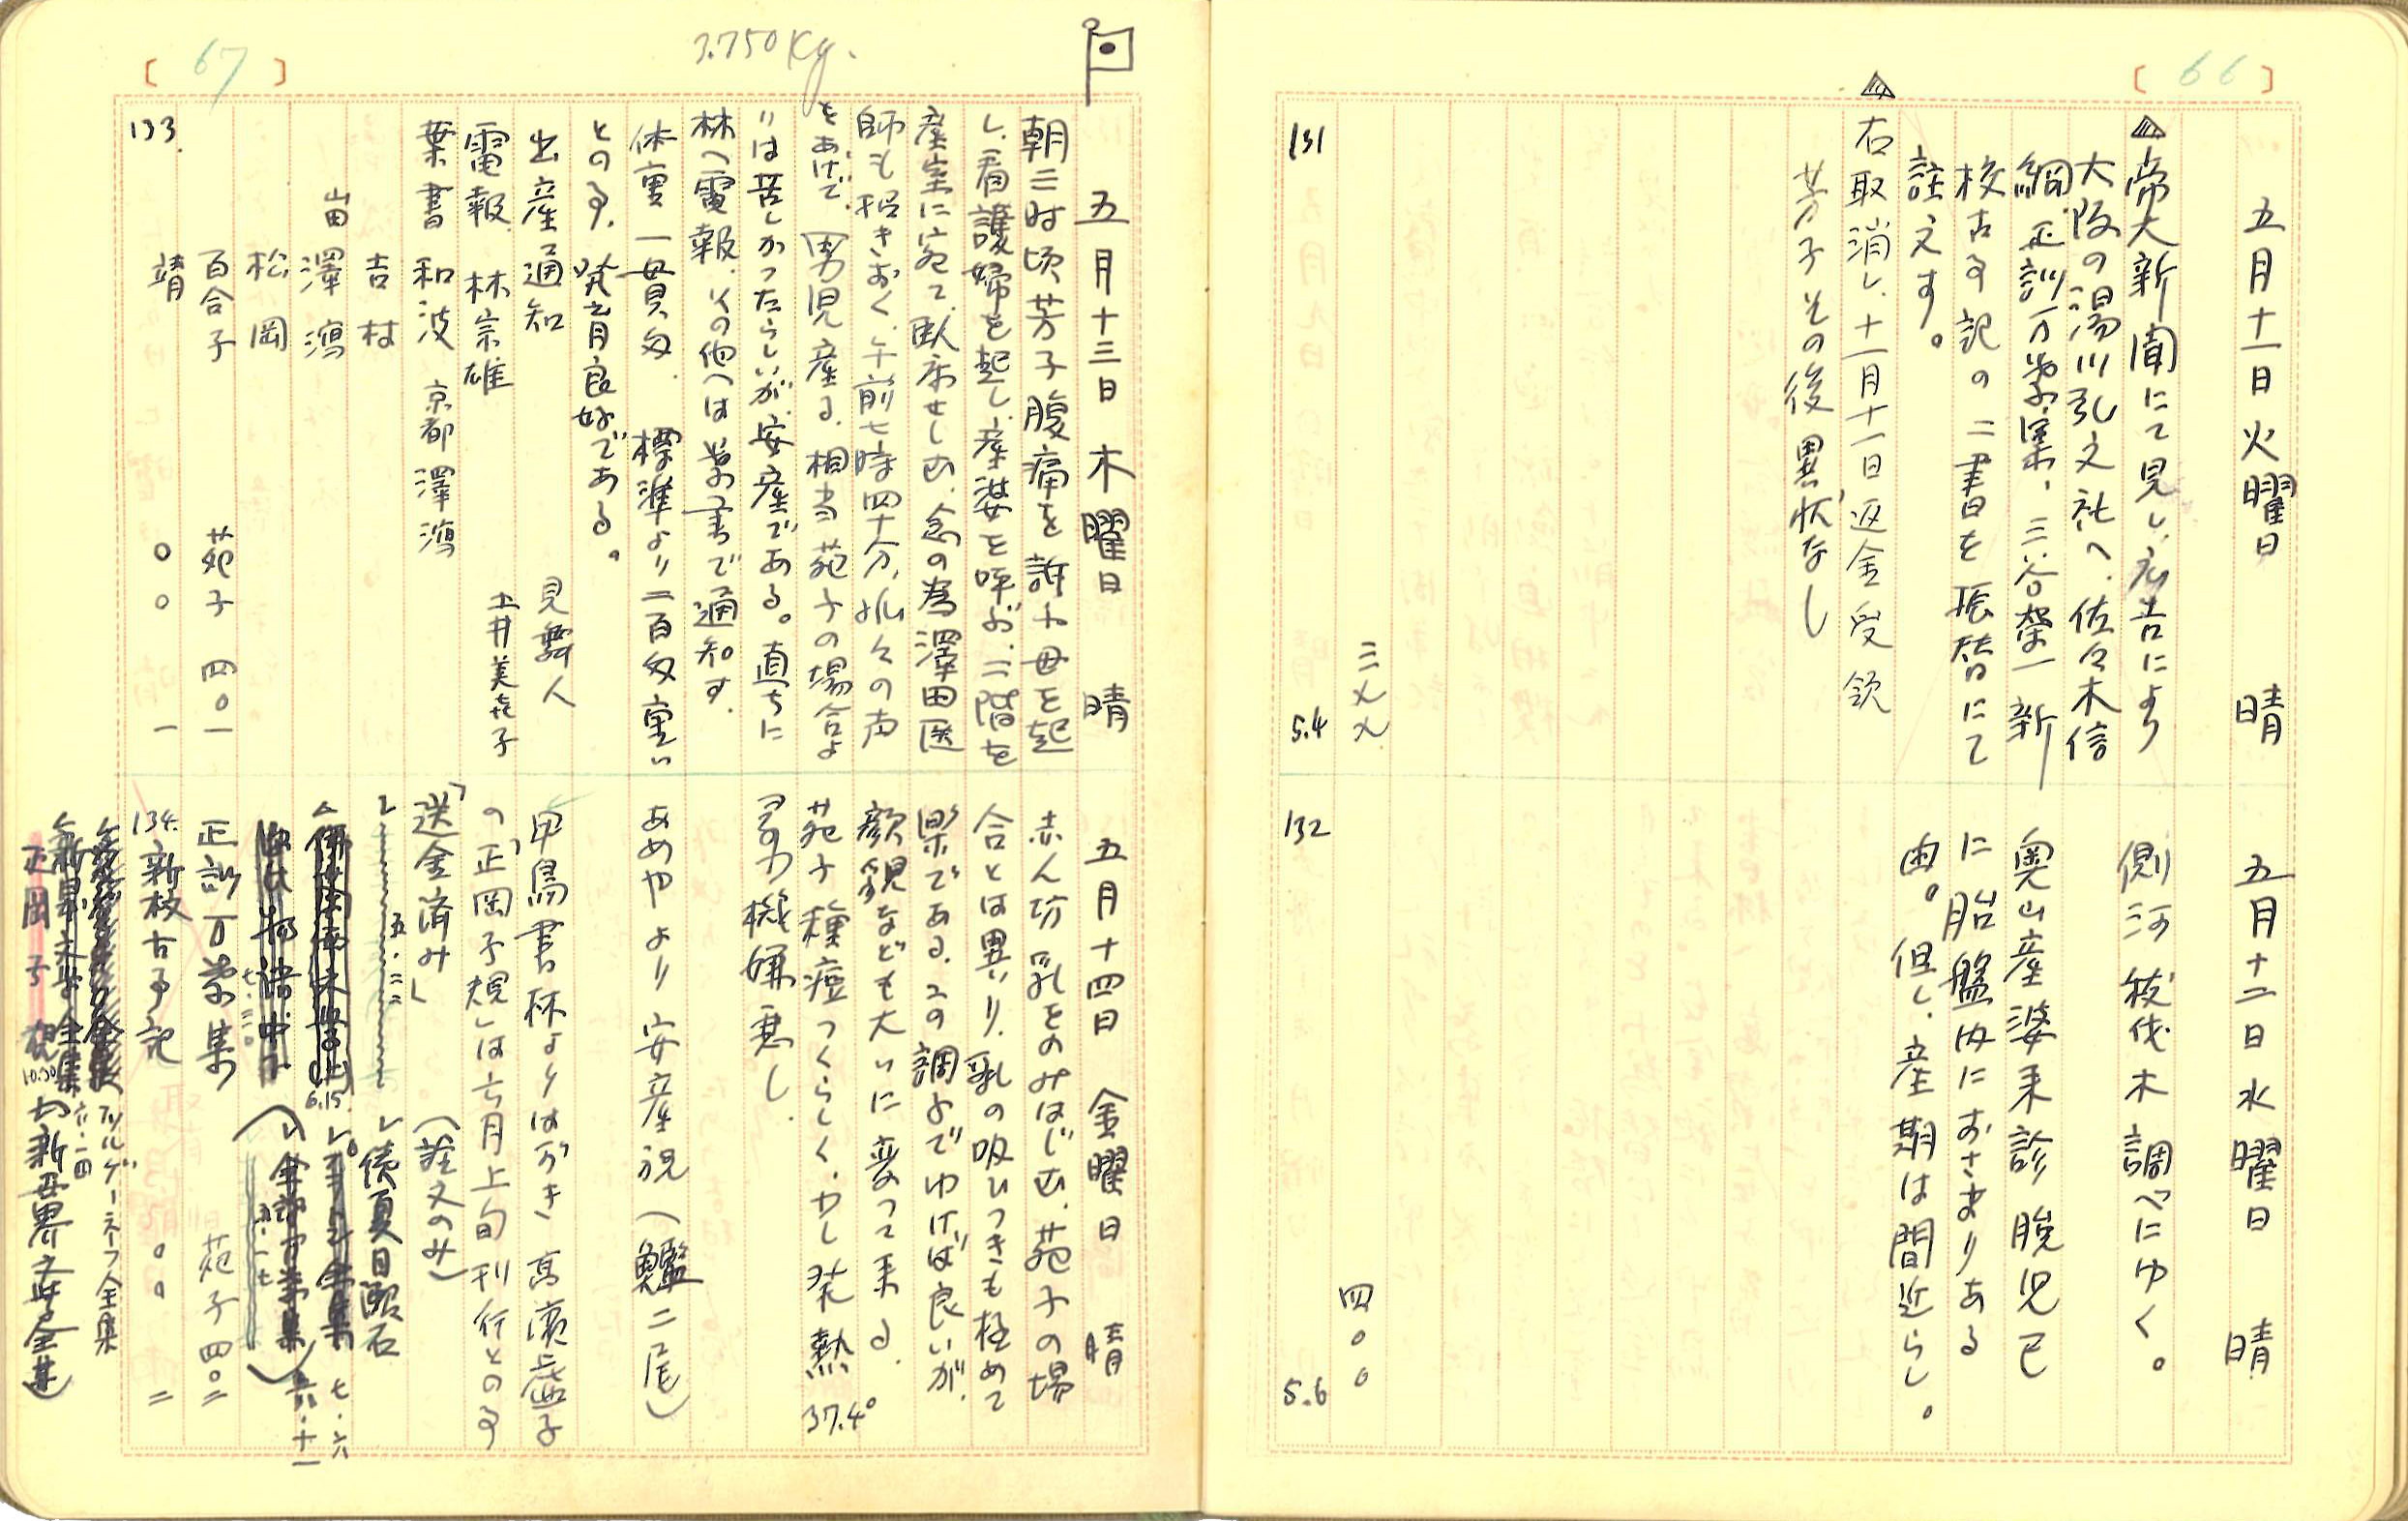 [ 66 ]
五月十一日 火曜日 晴
帝大新聞にて見し広告により
大阪の湯川弘文社へ、佐々木信
綱 正訓万葉集、三谷榮一 新
校古事記の二書を振替にて
註文す。
右取消し、十一月十一日返金受領
芳子その後異状なし
131
5.4
五月十二日 水曜日 晴
側河 筏伐木調べにゆく。
奥山産婆来診 胎児已
に胎盤内におさまりある
由。但し、産期は間近らし。
四〇〇
132
5.6
[ 67 ]
3.750 Kg.
五月十三日 木曜日 晴
朝三時頃、芳子腹痛を訴へ母を起
し、看護婦を起し、産婆を呼ぶ、二階を
産室に宛て、臥床せしむ、念の為澤田医
師も招きおく、午前七時四十分、呱々の声
をあげて、男児産る、相当苑子の場合よ
りは苦しかったらしいが、安産である。直ちに
林へ電報、その他へは葉書で通知す。
体重 一貫匁、標準より二百匁重い
との事、発育良好である。
出産通知
見舞人
電報 林宗雄
土井美㐂子
葉書 和波 京都 澤瀉
吉村
山田 澤瀉
松岡
百合子 苑子 四〇一
靖 〇〇 一
133.
五月十四日 金曜日 晴
赤ん坊 乳をのみはじむ、苑子の場
合とは異り、乳の吸ひつきも極めて
楽である、この調子でゆけば良いが、
顔貌なども大いに変って来る。
苑子 種痘つくらしく、少し発熱 37.4°
その為機嫌悪し、
あめやより 安産祝(鰹二尾)
甲鳥書林よりはがき 高濱虚子
の「正岡子規」は六月上旬刊行との事
「送金済み」(註文のみ)
五.二二
続夏目漱石
6.15
七.六
六.十一
正訓万葉集 苑子 四〇二
134. 新校古事記 〇〇 二
ツルゲーネフ全集
正岡子規 10.30
新世界文学全集